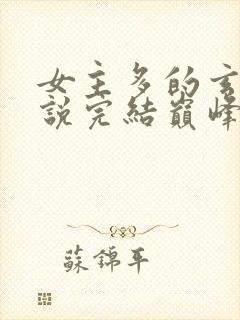 女主多的玄
說完結巔峰
蘇錦年